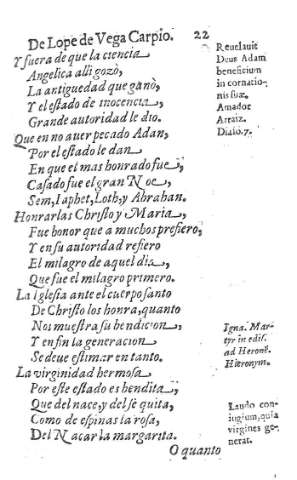 De Lope de Vega Carpio. 22
Y fuera de que la ciencia
Angelica alli gozò,
La antiguedad que ganò,
Y el estado de inocencia,
Grande autoridad le dio.
Que en no auer pecado Adan,
Por el estado le dan
En que el mas honrado fue,
Casado fue el gran Noe,
Sem, Iaphet, Loth, y Abrahan.
Honrarlas Christo y Maria,
Fue honor que a muchos prefiero,
Y en su autoridad refiero
El milagro de aquel dia,
Que fue el milagro primero.
La Iglesia ante el cuerpo santo
De Christo los honra, quanto
Nos muestra su bendicion,
Y en fin la generacion
Se deue estimar en tanto.
La virginidad hermosa
Por este estado es bendita,
Que del nace, y del se quita,
Como de espinas la rosa,
Del Nacar la margarita.
O quanto
Reuelauit
Deus Adam
beneficium
in cornatio-
nis suæ.
Amador
Arraiz.
Dialo. 7.
Igna. Mar-
tyr in edis.
ad Heronē.
Hieronym.
Laudo con-
iugium, quia
virgines ge-
nerat.